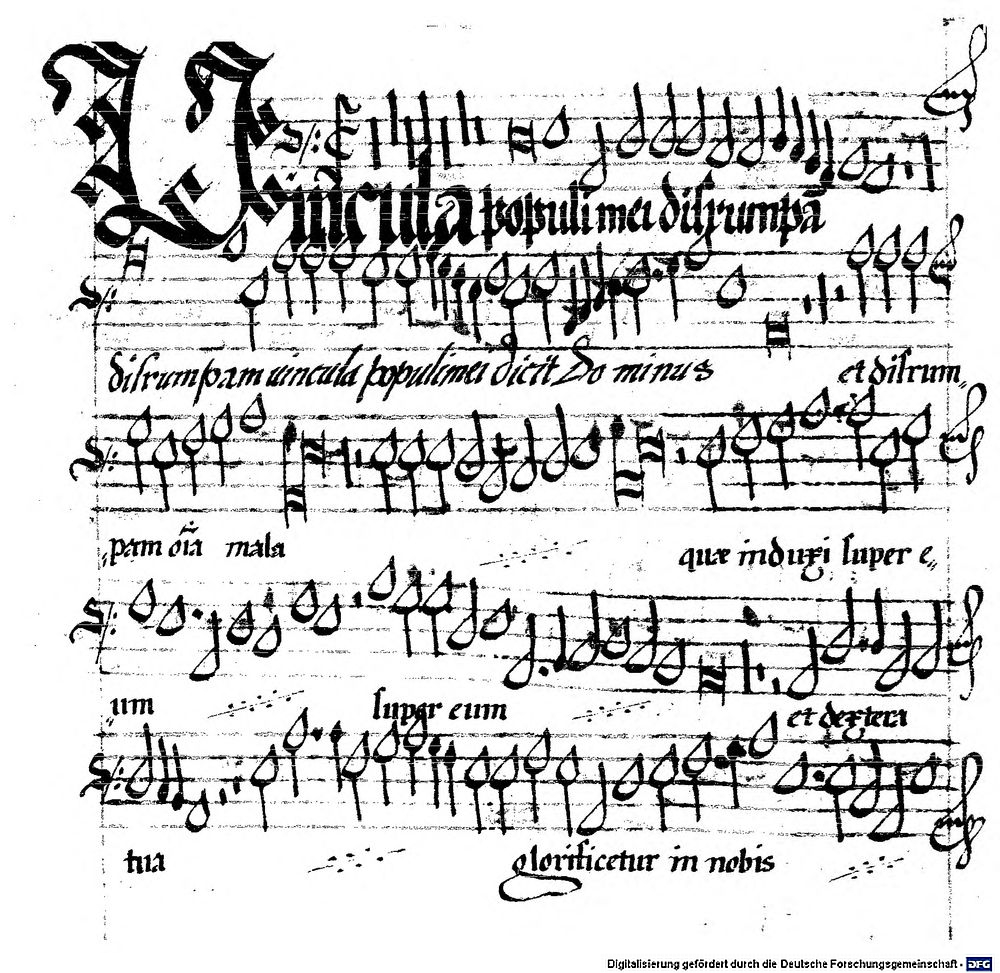 Vincula populi mei disrumpā
disrumpam uincula populi mei dicit Do minus et disrum„
„pam oīa mala quæ induxi super e„
„um super eum et dextera
tua glorificetur in nobis
Digitalisierung gefördert durch die Deutsche Forschungsgemeinschaft - DFG